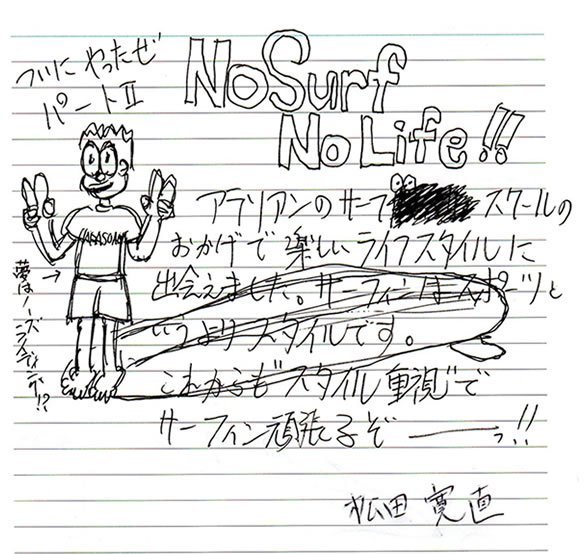 ついにやったぜ
パートII
No Surf
No Life!!
アラリアンのサーフ スクールの
おかげで楽しいライフスタイルに
出会えました。サーフィンはスポーツと
いうよりスタイルです。
これからもスタイル重視で
サーフィン頑張るぞーっ!!
夢はノーズ
ライディング!?
松田 寛直